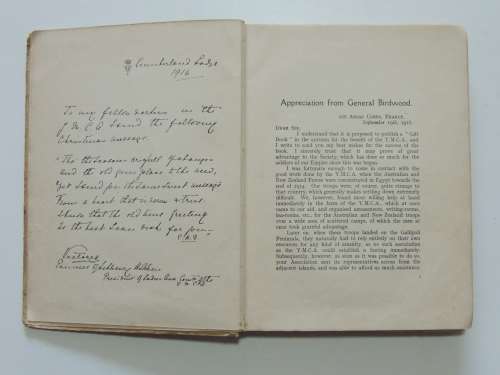 Cumberland Lodge
1916
To my fellow workers in the
Y.M.C.A I send the following
Christmas message.
the season is full of changes
and the old gives place to the new,
Yet I send you the same sweet message
From a heart that is warm & true
I know that the old time greeting
is the best
President of Ladies
Appreciation from General Birdwood.
1ST ANZAC CORPS, FRANCE,
September 19th, 1916.
Dear Sir,
I understand that it is proposed to publish a "Gift
Book" in the success for the benefit of the Y.M.C.A., and
I write to send you my best wishes for the success of the
book. I sincerely trust that it may prove of great
advantage to the Society, which has done so much for the
soldiers of our Empire since this war began.
I was fortunate enough to come in contact with the
good work done by the Y.M.C.A. when the Australian and
New Zealand Forces were concentrated in Egypt towards the
end of 1914. Our troops were, of course, quite strange to
that country, which generally made settling down extremely
difficult. We, however, found most willing help at hand
immediately in the form of the Y.M.C.A., which at once
came to our aid, and organised amusements, writing-rooms,
tea-rooms, etc., for the Australian and New Zealand troops
over a wide area of scattered camps, of which the men at
once took grateful advantage.
Later on, when these troops landed on the Gallipoli
Peninsula, they naturally had to rely entirely on their own
resources for any kind of amenity, as no such association
as the Y.M.C.A. could establish a footing immediately.
Subsequently, however, as soon as it was possible to do so,
your Association sent its representatives across from the
adjacent islands, and was able to afford us much assistance